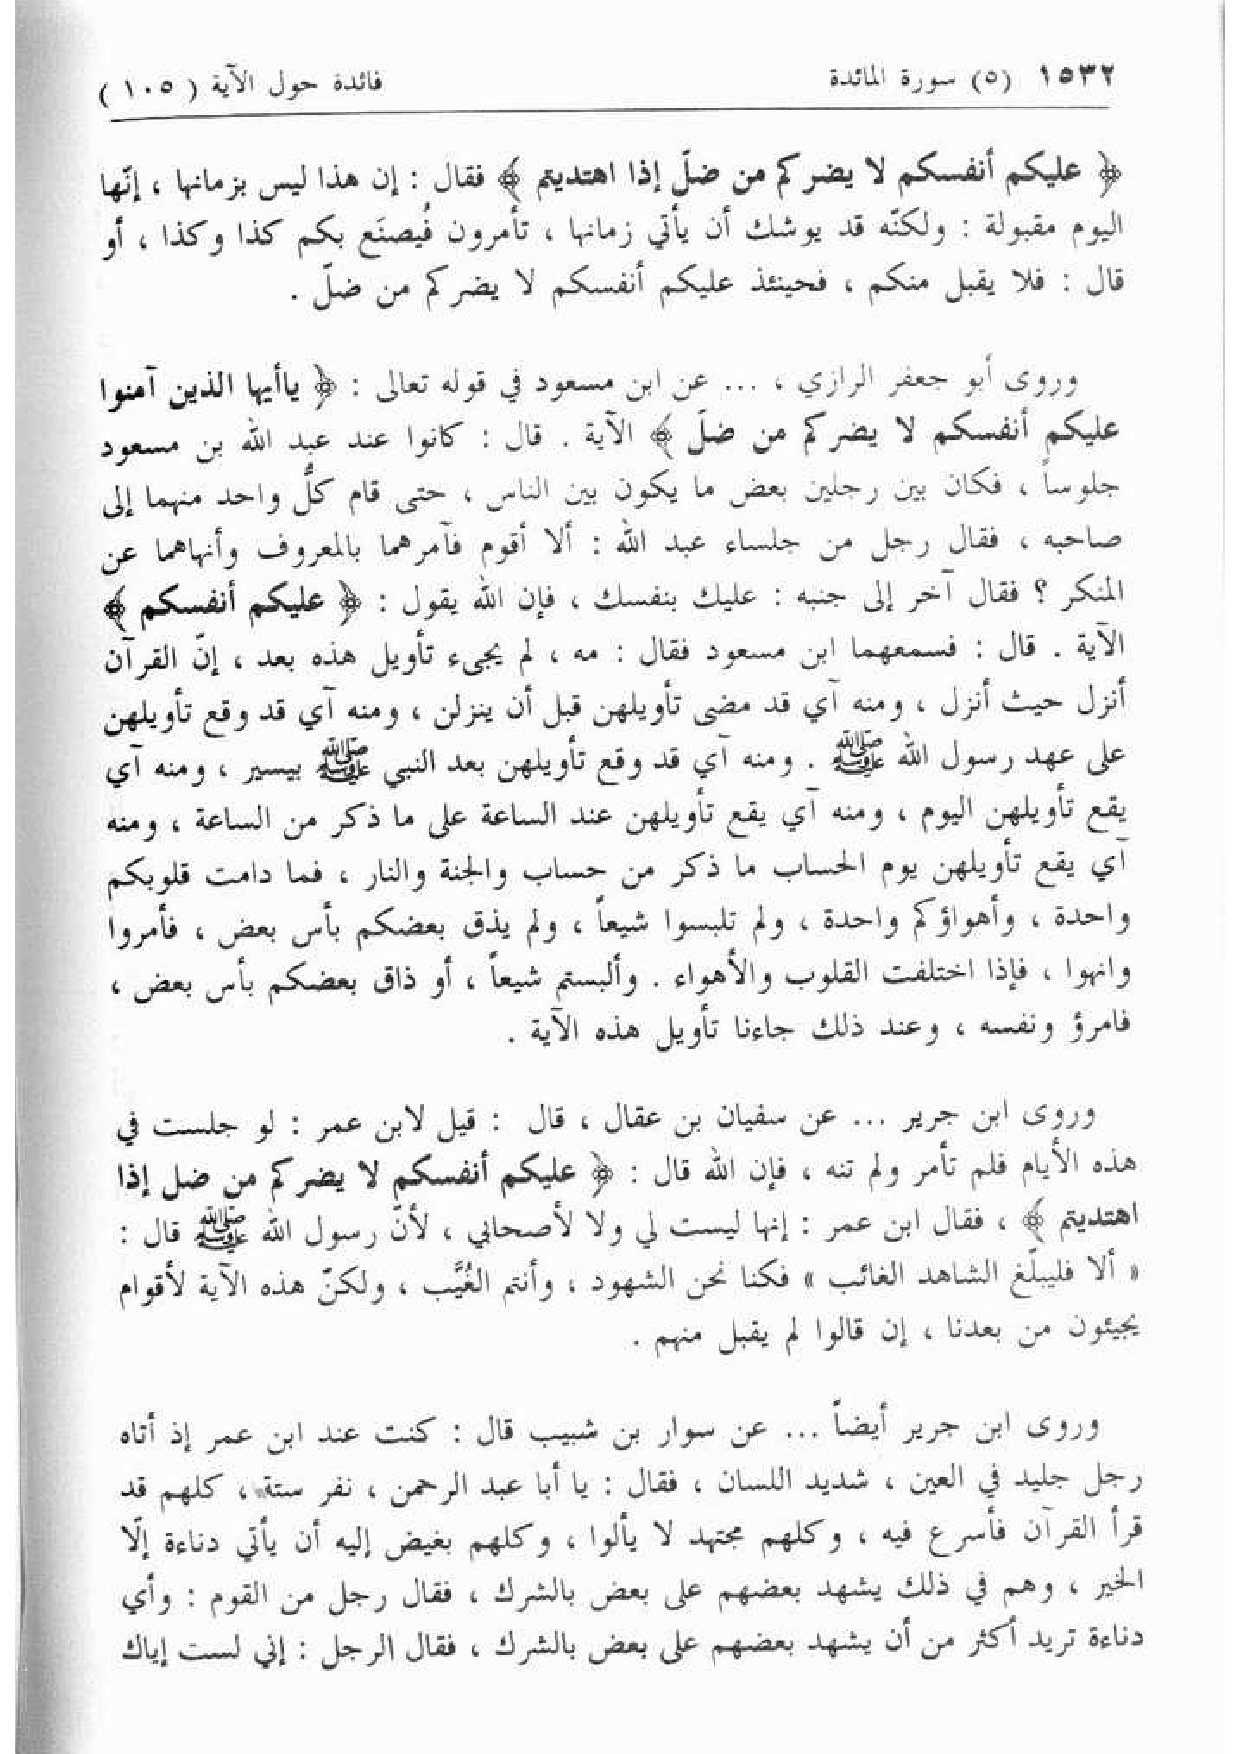 ١٥٣٢ (٥) سورة المائدة فائدة حول الآية (١٠٥)
﴿ عليكم أنفسكم لا يضركم من ضلّ إذا اهتديتم ﴾ فقال : إن هذا ليس بزمانها ، إنّها
اليوم مقبولة : ولكنّه قد يوشك أن يأتي زمانها ، تأمرون فُيصنَع بكم كذا وكذا ، أو
قال : فلا يقبل منكم ، فحينئذ عليكم أنفسكم لا يضركم من ضلّ .
وروى أبو جعفر الرازي ، ... عن ابن مسعود في قوله تعالى : ﴿ ياأيها الذين آمنوا
عليكم أنفسكم لا يضركم من ضلّ ﴾ الآية . قال : كانوا عند عبد الله بن مسعود
جلوساً ، فكان بين رجلين بعض ما يكون بين الناس ، حتى قام كلُّ واحد منهما إلى
صاحبه ، فقال رجل من جلساء عبد الله : ألا أقوم فآمرهما بالمعروف وأنهاهما عن
المنكر ؟ فقال آخر إلى جنبه : عليك بنفسك ، فإن الله يقول : ﴿ عليكم أنفسكم ﴾
الآية . قال : فسمعهما ابن مسعود فقال : مه ، لم يجىء تأويل هذه بعد ، إنّ القرآن
أنزل حيث أنزل ، ومنه آي قد مضى تأويلهن قبل أن ينزلن ، ومنه آي قد وقع تأويلهن
على عهد رسول الله ﷺ . ومنه آي قد وقع تأويلهن بعد النبي ﷺ بيسير ، ومنه آي
يقع تأويلهن اليوم ، ومنه آي يقع تأويلهن عند الساعة على ما ذكر من الساعة ، ومنه
آي يقع تأويلهن يوم الحساب ما ذكر من حساب والجنة والنار ، فما دامت قلوبكم
واحدة ، وأهواؤكم واحدة ، ولم تلبسوا شيعاً ، ولم يذق بعضكم بأس بعض ، فأمروا
وانهوا ، فإذا اختلفت القلوب والأهواء . وألبستم شيعاً ، أو ذاق بعضكم بأس بعض ،
فامرؤ ونفسه ، وعند ذلك جاءنا تأويل هذه الآية .
وروى ابن جرير ... عن سفيان بن عقال ، قال : قيل لابن عمر : لو جلست في
هذه الأيام فلم تأمر ولم تنه ، فإن الله قال : ﴿ عليكم أنفسكم لا يضركم من ضل إذا
اهتديتم ﴾ ، فقال ابن عمر : إنها ليست لي ولا لأصحابي ، لأنّ رسول الله ﷺ قال :
« ألا فليبلّغ الشاهد الغائب » فكنا نحن الشهود ، وأنتم الغُيَّب ، ولكنّ هذه الآية لأقوام
يجيئون من بعدنا ، إن قالوا لم يقبل منهم .
وروى ابن جرير أيضاً ... عن سوار بن شبيب قال : كنت عند ابن عمر إذ أتاه
رجل جليد في العين ، شديد اللسان ، فقال : يا أبا عبد الرحمن ، نفر ستة ، كلهم قد
قرأ القرآن فأسرع فيه ، وكلهم مجتهد لا يألوا ، وكلهم بغيض إليه أن يأتي دناءة إلّا
الخير ، وهم في ذلك يشهد بعضهم على بعض بالشرك ، فقال رجل من القوم : وأي
دناءة تريد أكثر من أن يشهد بعضهم على بعض بالشرك ، فقال الرجل : إني لست إياك